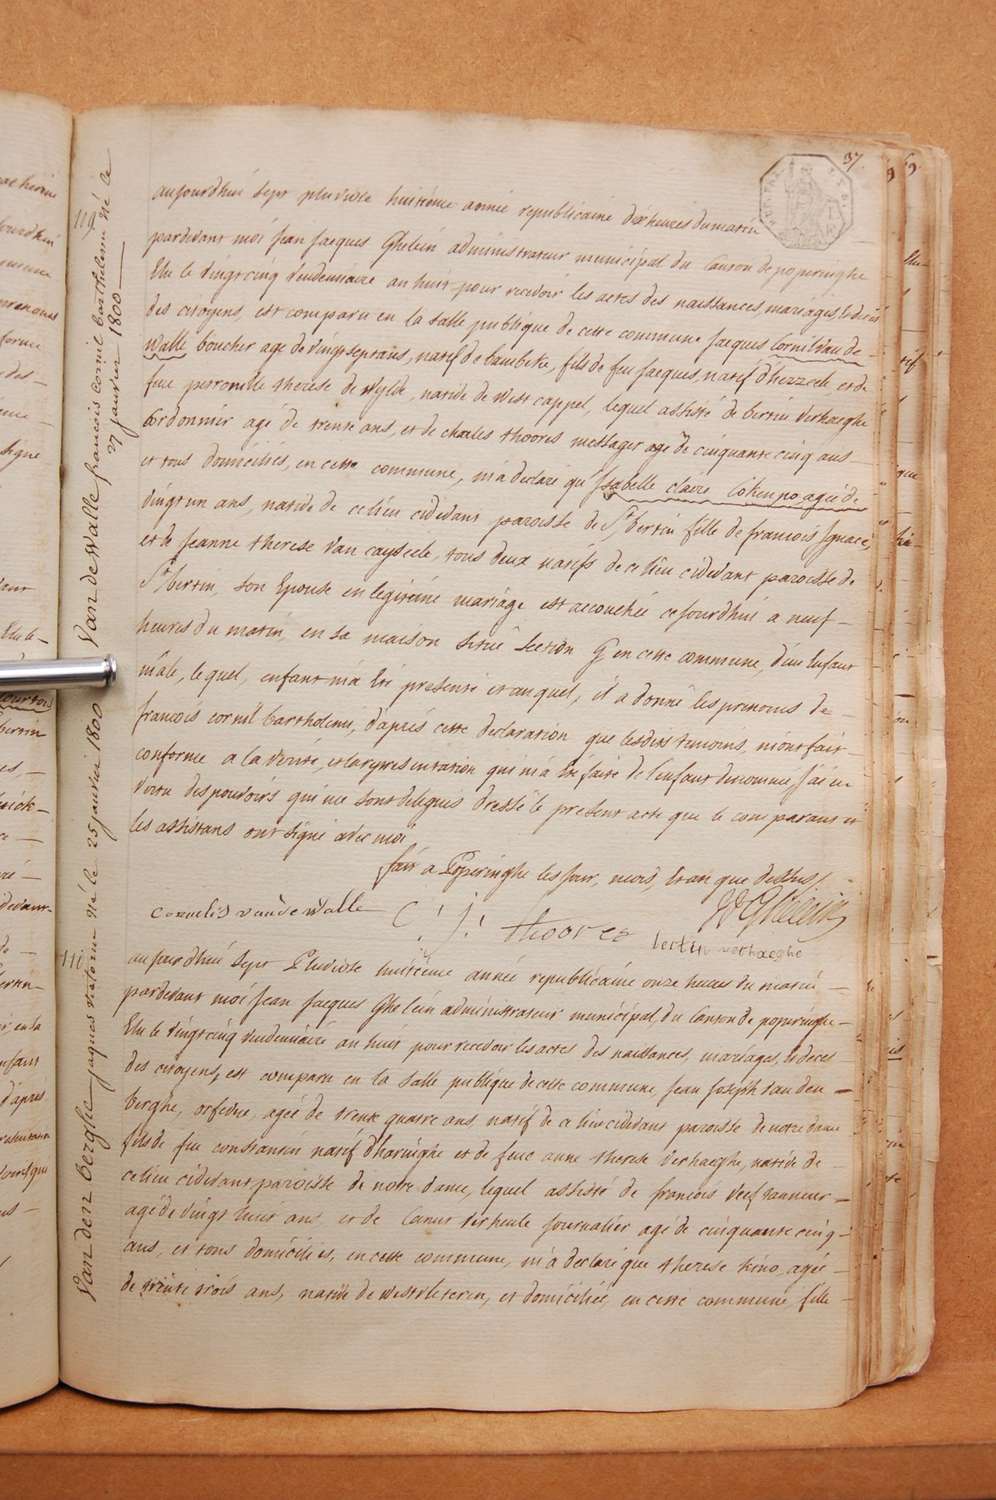 37
119
Van de Walle francois cornil barthelemi né le
27 janvier 1800
aujourdhui sept pluviose huitième année republicaine dix heures du matin
pardevant moi Jean Jacques Ghelein administrateur municipal du Canton de poperinghe
Elu le vingt cinq vendemiaire an huit pour recevoir les actes des naissances, mariages, et deces
des citoyens, est comparu en la salle publique de cette commune Jacques Cornil van de
Walle boucher agé de vingt sept ans, natif de bambeke, fils de feu Jacques, natif d'herzeele, et de
feue petronille therese de wylde, native de west cappel, lequel assisté de bertin verhaeghe
Cordonnier agé de trente ans, et de charles thoores messager agé de cinquante cinq ans
et tous domiciliés, en cette commune, m'a declaré qu'Isabelle claire Cohenpo agée de
vingt un ans, native de ce lieu cidevant paroisse de St bertin fille de francois Ignace,
et de Jeanne therese van cayseele, tous deux natifs de ce lieu cidevant paroisse de
St bertin, son Epouse en legitime mariage est accouchée ce jourdhui a neuf
heures du matin, en sa maison située section G en cette commune, d'un Enfant
mâle, lequel, enfant m'a été presenté et auquel, il a donné les prenoms de
francois cornil bartholemi, d'après cette declaration que lesdits temoins, m'ont fait
conforme a la verité, et la representation qui m'a été faite de l'enfant denommé, j'ai en
vertu des pouvoirs qui me sont delegués dressé le present acte que le comparant et
les assistans ont signé avec moi
fait a Poperinghe les Jour, mois, et an que dessus
cornelis vande walle C: J: thoores bertin verhaeghe JJ Ghelein
111
Van den berghe jaques antoine né le 25 janvier 1800
aujourdhui sept Pluviose huitième année republicaine onze heures du matin
pardevant moi Jean Jacques Ghelein administrateur municipal, du Canton de poperinghe
Elu le vingt cinq vendemiaire an huit pour recevoir les actes des naissances, mariages, et deces
des citoyens, est comparu en la salle publique de cette commune, Jean Joseph van den
berghe, orfevre, agé de trente quatre ans, natif de ce lieu cidevant paroisse de notre dame
fils de feu constantin natif d'haringhe et de feue anne therese verhaeghe, native de
ce lieu cidevant paroisse de notre dame, lequel assisté de francois vanneur
agé de vingt huit ans, et de Journalier agé de cinquante cinq
ans, et tous domiciliés, en cette commune, m'a declaré que therese kino, agée
de trente trois ans, native de westvleteren, et domiciliée, en cette commune, fille